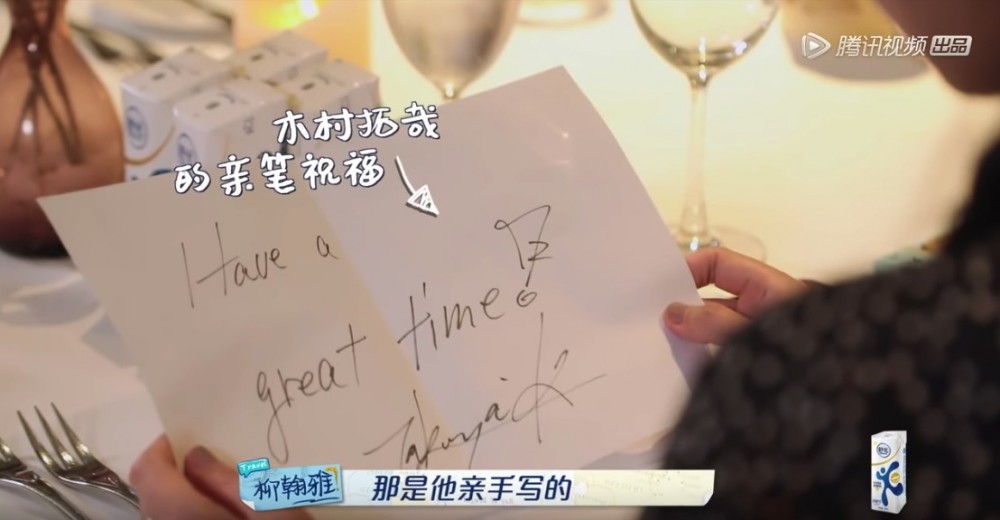 腾讯视频 出品
木村拓哉
的亲笔祝福
Have a
great time!
Takuya K
Travel
柳翰雅
那是他亲手写的